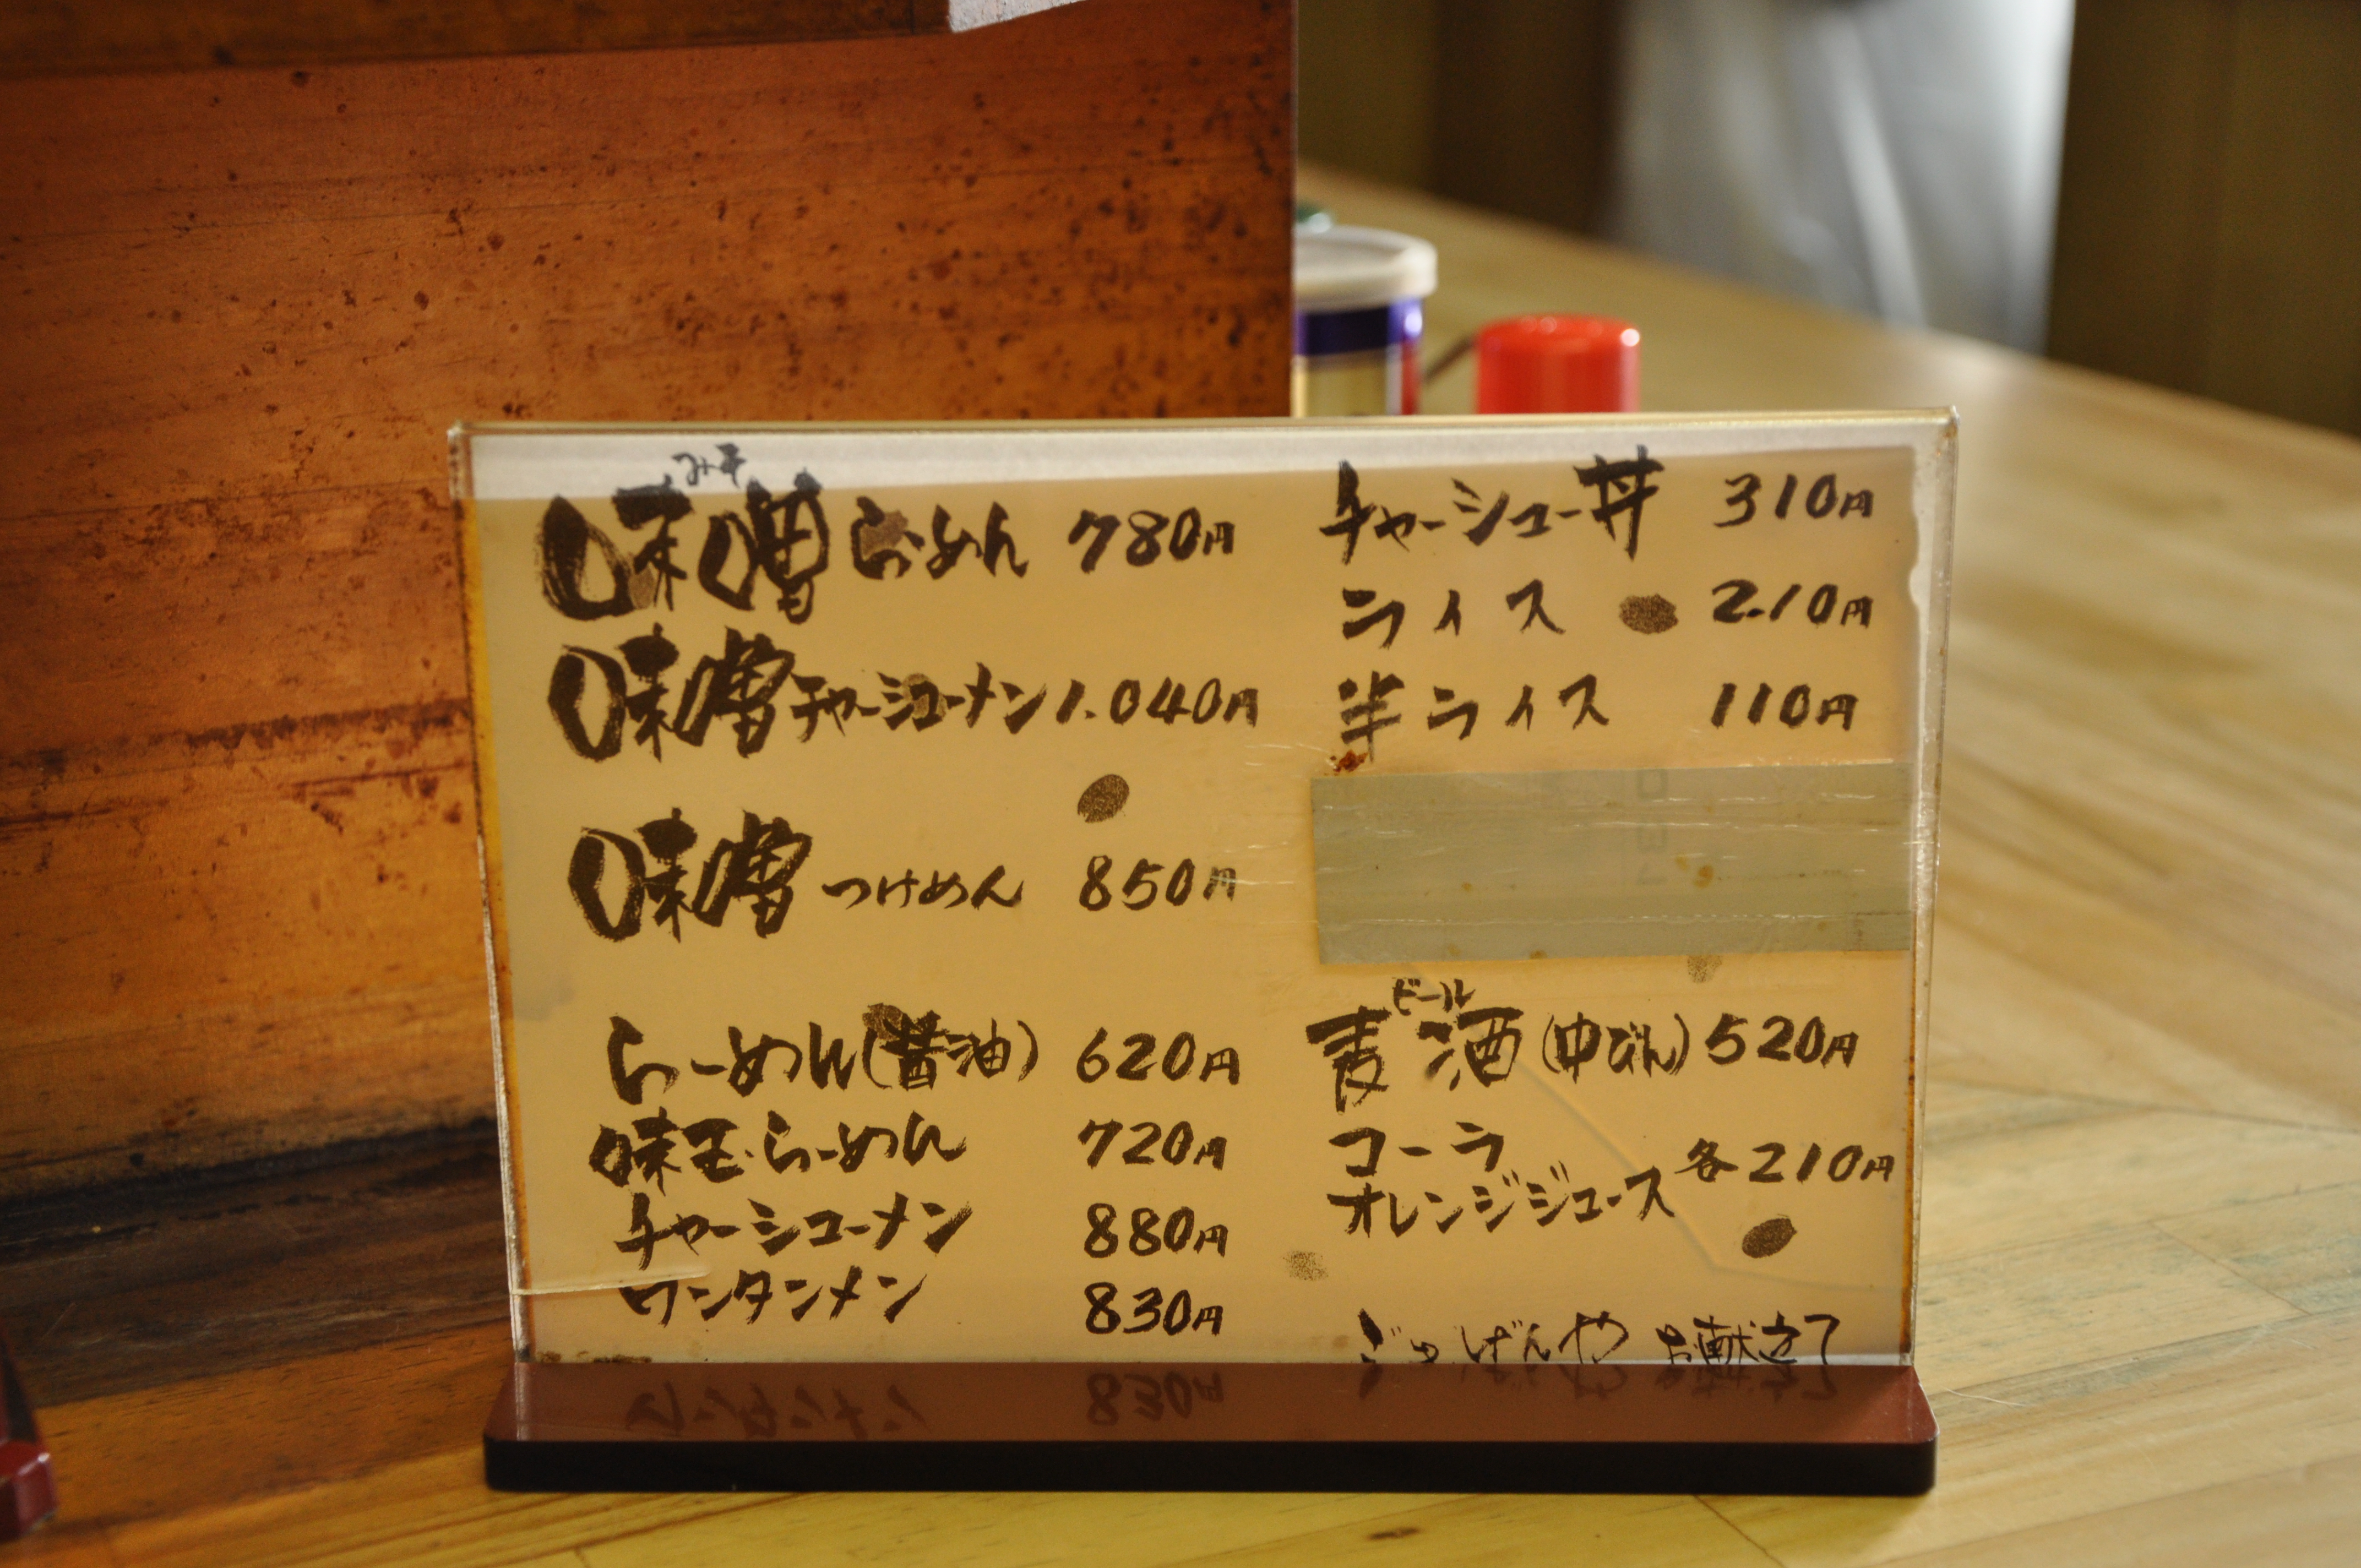 みそ
味噌らぁめん 780円
味噌チャーシューメン 1.040円
味噌つけめん 850円
らーめん(醤油) 620円
味玉らーめん 720円
チャーシューメン 880円
ワンタンメン 830円
チャーシュー丼 310円
ライス 210円
半ライス 110円
ビール
麦酒(中びん) 520円
コーラ
オレンジジュース 各210円
げんや お献立て